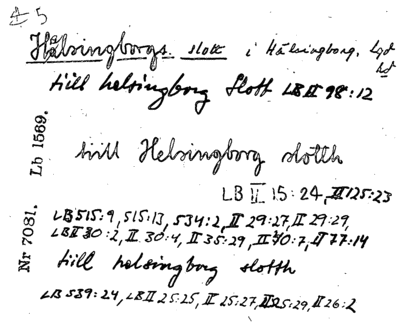 5
Hälsingborgs slott i Hälsingborg, Lgd
hd
tiill helsingborg Slott LB II 98:12
Lb 1569.
tiill Helsingborg slótth
LB II 15:24, III 125:23
LB 515:9, 515:13, 534:2, II 29:27, II 29:29,
LB II 30:2, II 30:4, II 35:29, II 40:7, II 77:14
Nr 7081.
tiill helsingborg slotth
LB 539:24, LB II 25:25, II 25:27, II 25:29, II 26:2